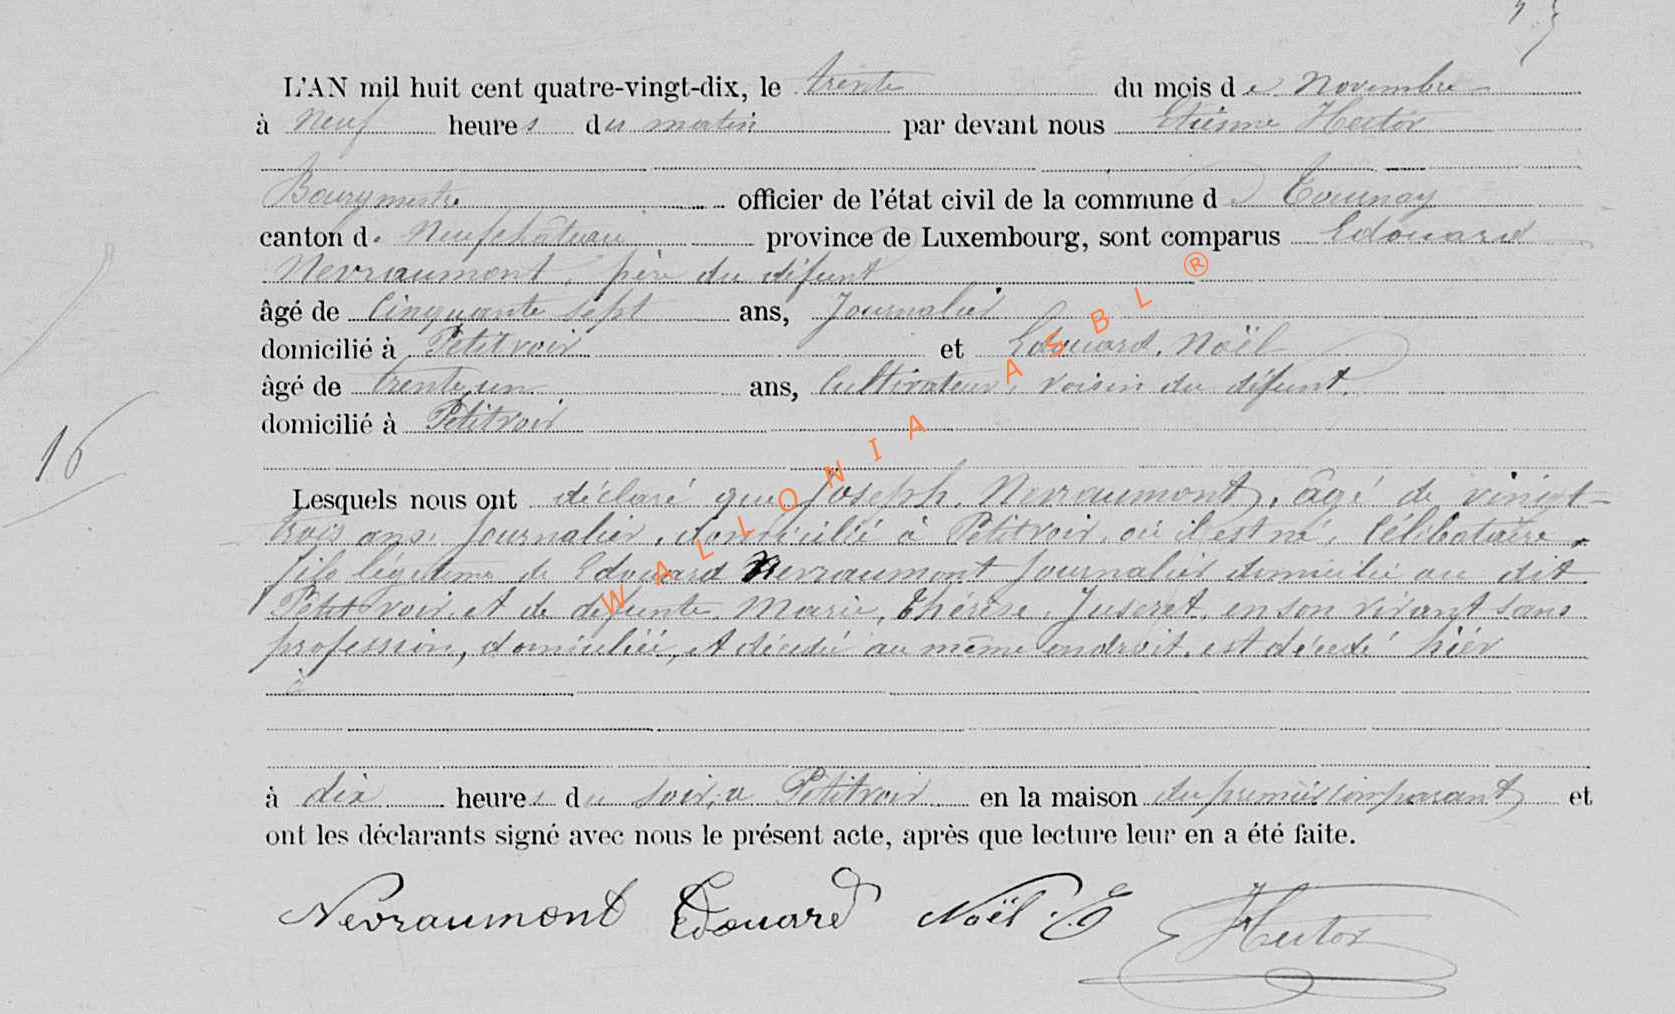 L'AN mil huit cent quatre-vingt-dix, le trente du mois de Novembre
à Neuf heures du matin par devant nous Etienne Hector
Bourgmestre officier de l'état civil de la commune de Tournay
canton de Neufchâteau province de Luxembourg, sont comparus Edouard
Nevraumont, père du défunt
âgé de Cinquante sept ans, Journalier
domicilié à Petitvoir et Edouard, Noël
âgé de trente un ans, Cultivateur, voisin du défunt,
domicilié à Petitvoir
16
Lesquels nous ont déclaré que Joseph, Nevraumont, âgé de vingt-
trois ans, Journalier, domicilié à Petitvoir, où il est né, Célibataire,
fils légitime de Edouard Nevraumont Journalier domicilié au dit
Petitvoir et de défunte Marie, Thérèse, Juseret, en son vivant sans
profession, domiciliée, et décédée au même endroit, est décédé hier
à dix heures du soir, à Petitvoir en la maison du premier comparant et
ont les déclarants signé avec nous le présent acte, après que lecture leur en a été faite.
Nevraumont Edouard Noël E Hector
WALLONIA ASBL ®